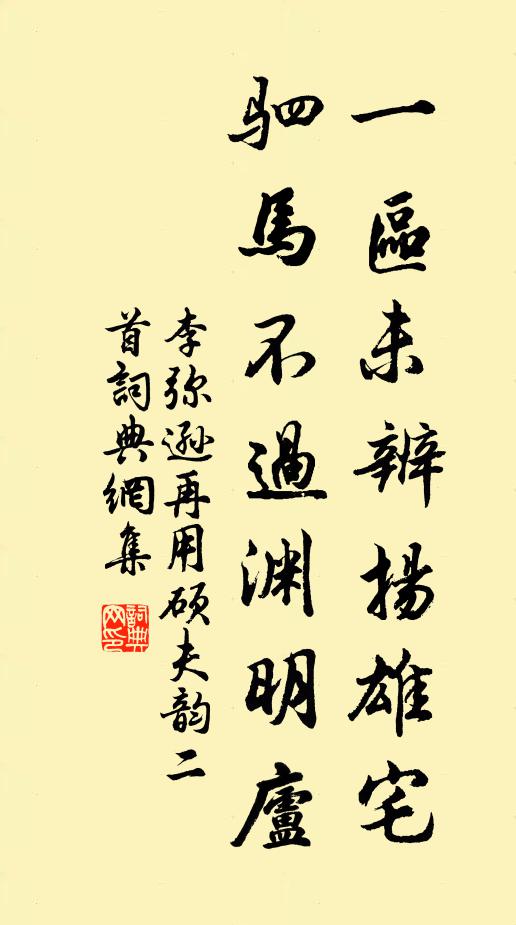 一區未辨揚雄宅
駟馬不過淵明廬
李弥遜再用硕夫韵二
首詞典網集
詞典網印